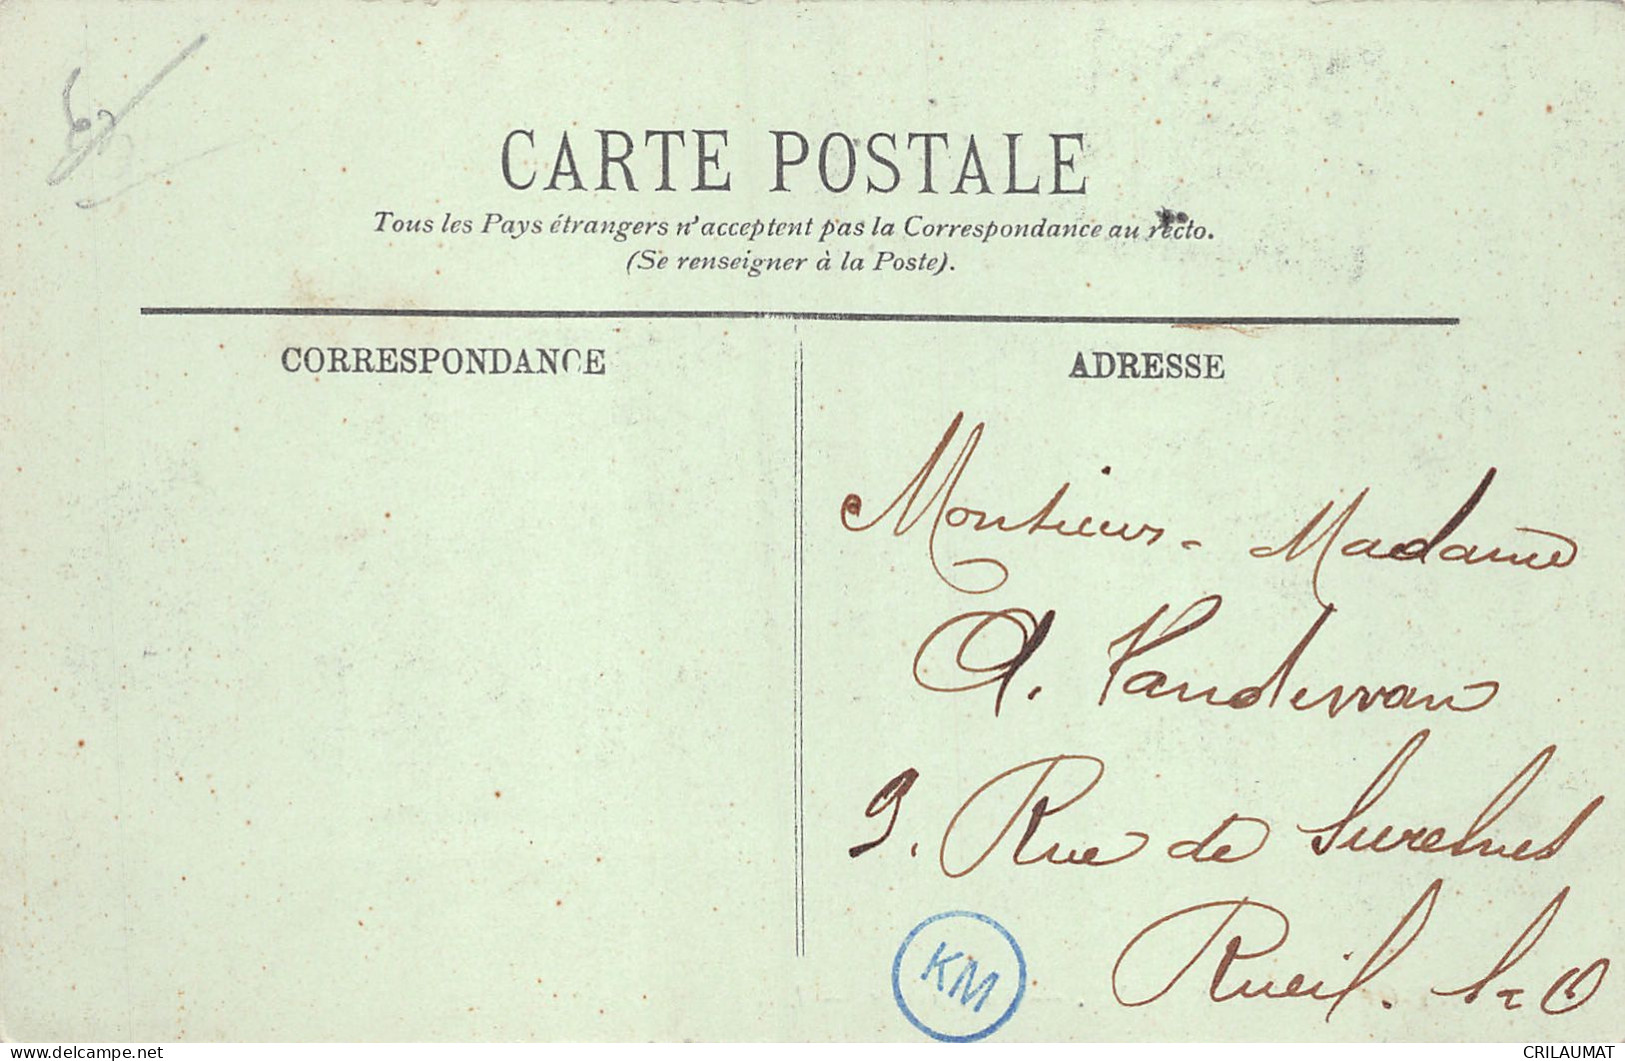 CARTE POSTALE
Tous les Pays étrangers n'acceptent pas la Correspondance au recto.
(Se renseigner à la Poste).
CORRESPONDANCE
ADRESSE
Monsieur - Madame
A.
9. Rue de Suresnes
Rueil. S=O
KM
delcampe.net
CRILAUMAT